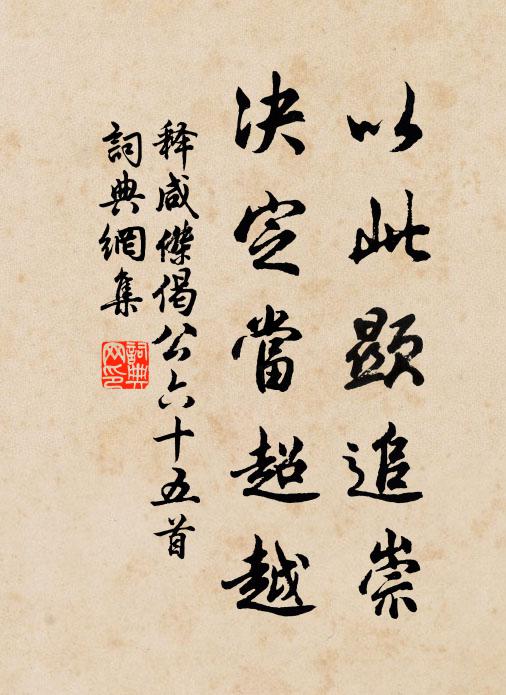 以此顯追崇
决定當超越
释咸傑偈公六十五首
詞典網集
詞典网印